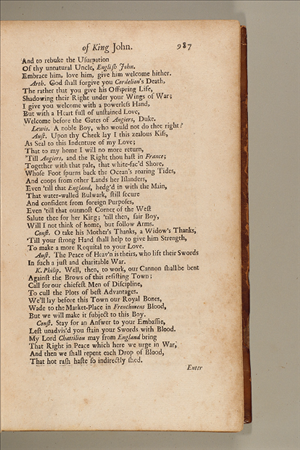 of King John. 987
And to rebuke the Usurpation
Of thy unnatural Uncle, English John.
Embrace him, love him, give him welcome hither.
Arth. God shall forgive you Cordelion's Death,
The rather that you give his Offspring Life,
Shadowing their Right under your Wings of War;
I give you welcome with a powerless Hand,
But with a Heart full of unstained Love,
Welcome before the Gates of Angiers, Duke.
Lewis. A noble Boy, who would not do thee right?
Aust. Upon thy Cheek lay I this zealous Kiss,
As Seal to this Indenture of my Love;
That to my home I will no more return,
'Till Angiers, and the Right thou hast in France;
Together with that pale, that white-fac'd Shore,
Whose Foot spurns back the Ocean's roaring Tides,
And coops from other Lands her Islanders,
Even 'till that England, hedg'd in with the Main,
That water-walled Bulwark, still secure
And confident from foreign Purposes,
Even 'till that outmost Corner of the West
Salute thee for her King; 'till then, fair Boy,
Will I not think of home, but follow Arms.
Const. O take his Mother's Thanks, a Widow's Thanks,
Till your strong Hand shall help to give him Strength,
To make a more Requital to your Love.
Aust. The Peace of Heav'n is theirs, who lift their Swords
In such a just and charitable War.
K. Philip. Well, then, to work, our Cannon shall be bent
Against the Brows of this resisting Town;
Call for our chiefest Men of Discipline,
To cull the Plots of best Advantages.
We'll lay before this Town our Royal Bones,
Wade to the Market-Place in Frenchmens Blood,
But we will make it subject to this Boy.
Const. Stay for an Answer to your Embassie,
Lest unadvis'd you stain your Swords with Blood.
My Lord Chatilion may from England bring
That Right in Peace which here we urge in War,
And then we shall repent each Drop of Blood,
That hot rash haste so indirectly shed.
Enter